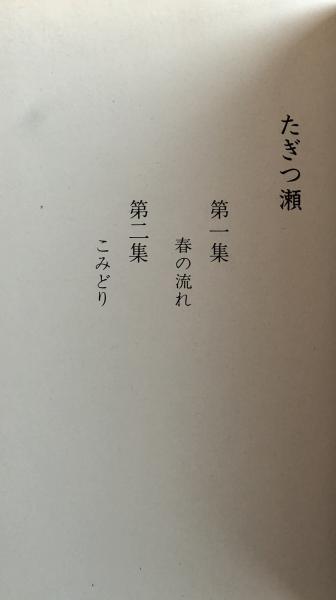 たぎつ瀬
第一集
春の流れ
第二集
こみどり